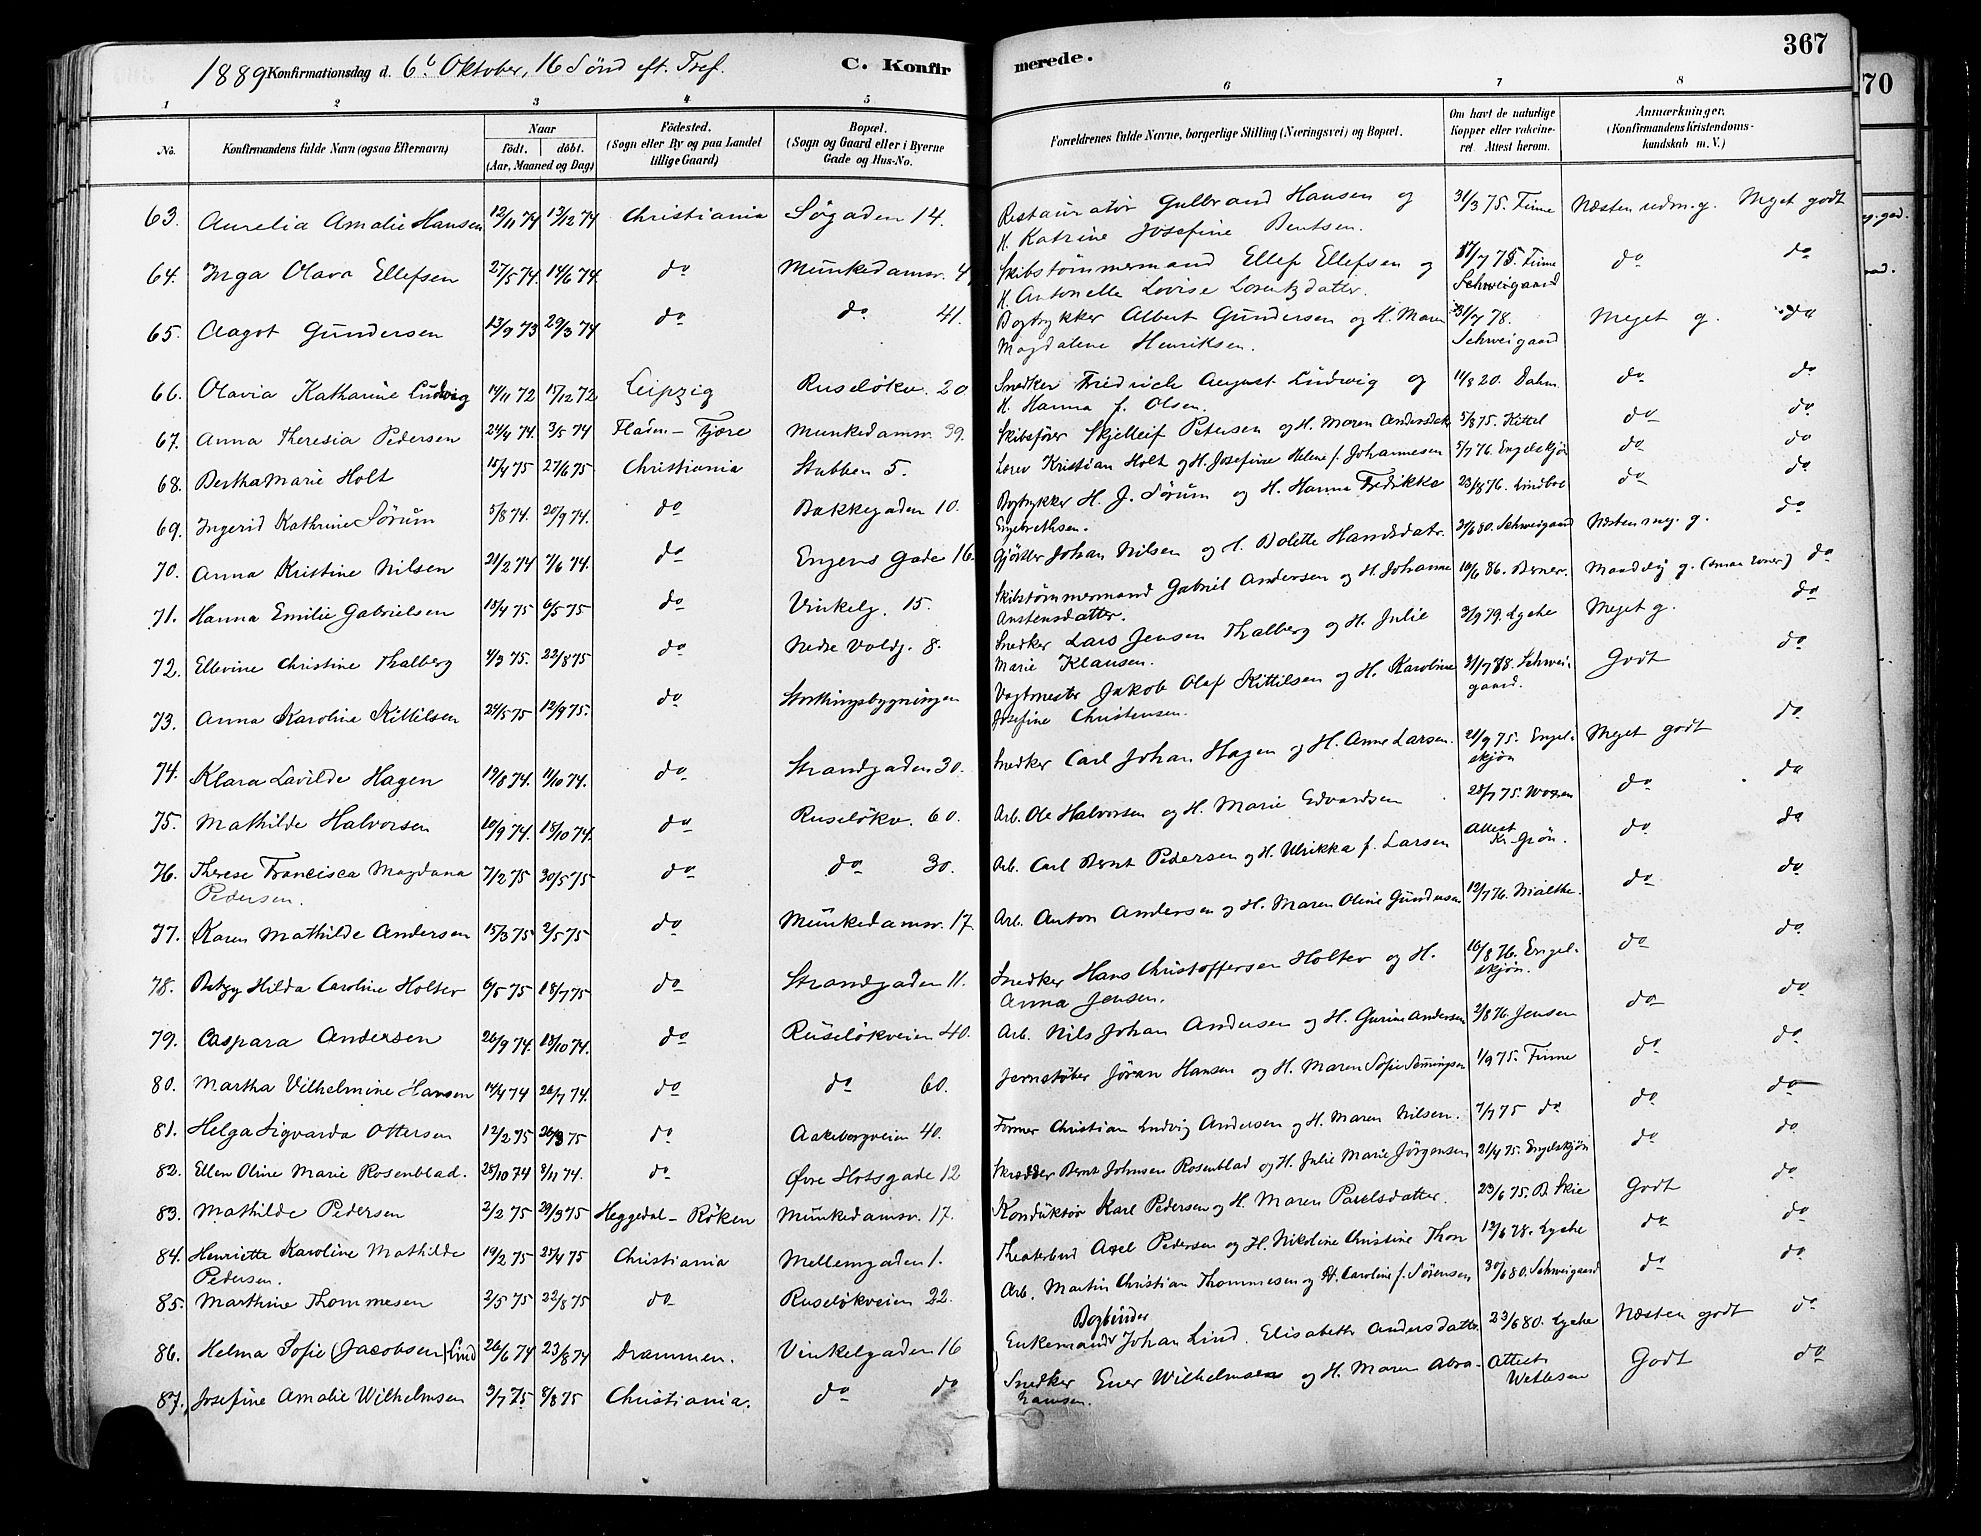 367
70
1889 Konfirmationsdag d. 6te Oktober, 16 Sönd eft. Tref. C. Konfirmerede.
1 2 3 4 5 6 7 8
No. Konfirmandens fulde Navn (ogsaa Efternavn) Naar födt. döbt. (Aar, Maaned og Dag) Födested. (Sogn eller By og paa Landet tillige Gaard) Bopæl. (Sogn og Gaard eller i Byerne Gade og Hus-No. Forældrenes fulde Navne, borgerlige Stilling (Næringsvei) og Bopæl. Om havt de naturlige Kopper eller vaccineret. Attest herom. Anmærkninger. (Konfirmandens Kristendomskundskab m. V.)
63. Aurelia Amalie Hansen 12/11 74 13/12 74 Christiania Søgaden 14. Restauratør Gulbrand Hansen og H. Katrine Josefine Bentsen. 31/3 75. Finne Næsten udm. g. Meget godt
64. Inga Olava Ellefsen 27/5 74. 14/6 74 do Munkedamsv. 4 Skibstømmermand Ellef Ellefsen og H. Antonette Lovise Lorentzdatter. 17/7 75 Finne Schweigaard do do
65. Aagot Gundersen 13/9 73 29/3 74 do do 41. Bogtrykker Albert Gundersen og H. Maren Magdalene Henriksen. 31/7 78. Schweigaard Meget g. do
66. Olavia Katharine Ludwig 14/11 72 15/12 72 Leipzig Ruseløkv. 20. Snedker Friedrich August Ludwig og H. Hanna f. Olsen. 11/8 20. Dahm do do
67. Anna Theresia Pedersen 24/4 74. 3/5 74 Fladen - Fjære Munkedamsv. 39. Skibsfører Skjelleif Petersen og H. Maren Andersdatr 5/8 75. Kittel do do
68. Bertha Marie Holt 15/4 75 27/6 75 Christiania Stubben 5. Kristian Holt og H. Josefine Helene f. Johannesen 5/7 76. Engelskjøn do do
69. Ingerid Kathrine Sørum 5/8 74. 20/9 74. do Bakkegaden 10. Bogtrykker H. J. Sørum og H. Hanna Fredrikke Engebrethsen. 23/8 76. Lindboe do do
70. Anna Kristine Nilsen 21/2 74 7/6 74. do Engens Gade 16 Gjørtler Johan Nilsen og H. Bolette Hansdatr. 30/6 80. Schweigaard Næsten meg. g. do
71. Hanna Emilie Gabrielsen 15/4 75 6/5 75 do Vinkelg. 15. Skibstømmermand Gabriel Andersen og H. Johanne Anstensdatter. 10/6 86. Berner. Maadelig g. (smaa Evner) do
72. Ellevine Christine Thalberg 4/3 75. 22/8 75 do Nedre Voldg. 8. Snedker Lars Jensen Thalberg og H. Julie Marie Klausen. 3/9 79. Lyche Meget g. do
73. Anna Karoline Kittilsen 25/5 75 12/9 75. do Storthingsbygningen Vagtmester Jakob Olaf Kittilsen og H. Karoline Josefine Christensen. 31/7 78. Schweigaard. Godt do
74. Klara Lavilde Hagen 19/8 74. 11/10 74. do Strandgaden 30. Snedker Carl Johan Hagen og H. Anne Larsen. 21/9 75. Engelskjøn Meget godt do
75. Mathilde Halvorsen 10/9 74. 18/10 74. do Ruseløkv. 60. Arb. Ole Halvorsen og H. Marie Edvardsen 28/7 75. Woxen do do
76. Therese Francisca Magdana Pedersen. 7/2 75 30/5 75 do do 30. Arb. Carl Bernt Pedersen og H. Ulrikka f. Larsen Attest Kr. Grøn. do do
77. Karen Mathilde Andersen 15/3 75 2/5 75 do Munkedamsv. 17. Arb. Anton Andersen og H. Maren Oline Gundersen 12/7 76. Malthe. do do
78. Betzy Hilda Caroline Holter 6/5 75 18/7 75 do Strandgaden 11. Snedker Hans Christoffersen Holter og H. Anna Jensen. 10/8 76. Engelskjøn. do do
79. Caspara Andersen 26/9 74. 18/10 74. do Ruseløkveien 40. Arb. Nils Johan Andersen og H. Gurine Andersen 2/8 76. Jensen do do
80. Martha Vilhelmine Hansen 14/4 74 26/7 74. do do 60. Jernstøber Jøran Hansen og H. Maren Sofie Semingsen 1/9 75. Finne do do
81. Helga Sigvarda Ottersen 12/2 75 26/3 75 do Aakebergveien 40. Former Christian Ludvig Andersen og H. Maren Nilsen. 7/7 75 do do do
82. Ellen Oline Marie Rosenblad. 28/10 74 8/11 74. do Øvre Slotsgade 12 Skrædder Bernt Johnsen Rosenblad og H. Julie Marie Jörgensen 21/4 75. Engelskjøn do do
83. Mathilde Pedersen 2/2 75 29/3 75 Heggedal - Röken Munkedamsv. 17. Konduktør Karl Pedersen og H. Maren Paulsdatter. 23/6 75. B. Skie Godt do
84. Henriette Karoline Mathilde Pedersen. 19/2 75 25/4 75 Christiania Mellemgaden 1. Theaterbud Axel Pedersen og H. Nikoline Christine Thon 12/6 78. Lyche do do
85. Marthine Thommesen 2/5 75 22/8 75 do Ruseløkveien 22. Arb. Martin Christian Thommesen og H. Caroline f. Sørensen 30/6 80. Schweigaard do do
86. Helma Sofie (Jacobsen) Lind 26/6 74 23/8 74 Drammen. Vinkelgaden 16 Enkemand Bogbinder Johan Lind. Elisabeth Andersdatter 23/6 80. Lyche Næsten godt do
87. Josefine Amalie Wilhelmsen 3/7 75 8/8 75 Christiania. do do Snedker Ener Wilhelmsen og H. Maren Abrahamsen. Attest Wetlesen Godt do